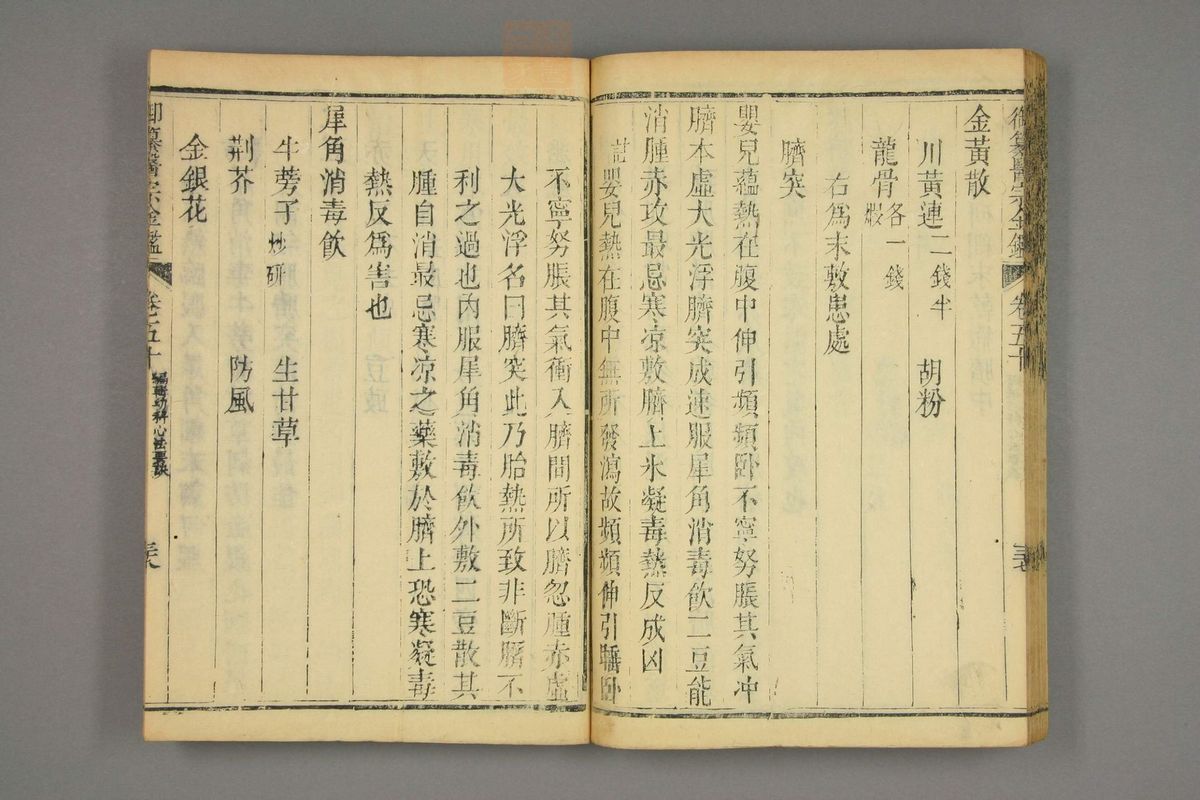 御纂醫宗金鑑 卷五十
金黃散
川黃連二錢半 胡粉
龍骨煅各一錢
右爲末敷患處
臍突
嬰兒蘊熱在腹中伸引頻頻臥不寧努脹其氣冲
臍本虛大光浮臍突成速服犀角消毒飲二豆能
消腫赤攻最忌寒凉敷臍上氷凝毒熱反成凶
註嬰兒熱在腹中無所發瀉故頻頻伸引睡臥
不寧努脹其氣衝入臍間所以臍忽腫赤虛
大光浮名曰臍突此乃胎熱所致非斷臍不
利之過也內服犀角消毒飲外敷二豆散其
腫自消最忌寒凉之藥敷於臍上恐寒凝毒
熱反爲害也
犀角消毒飲
牛蒡子炒研 生甘草
荆芥 防風
金銀花
御纂醫宗金鑑 卷五十 編輯幼科心法要訣